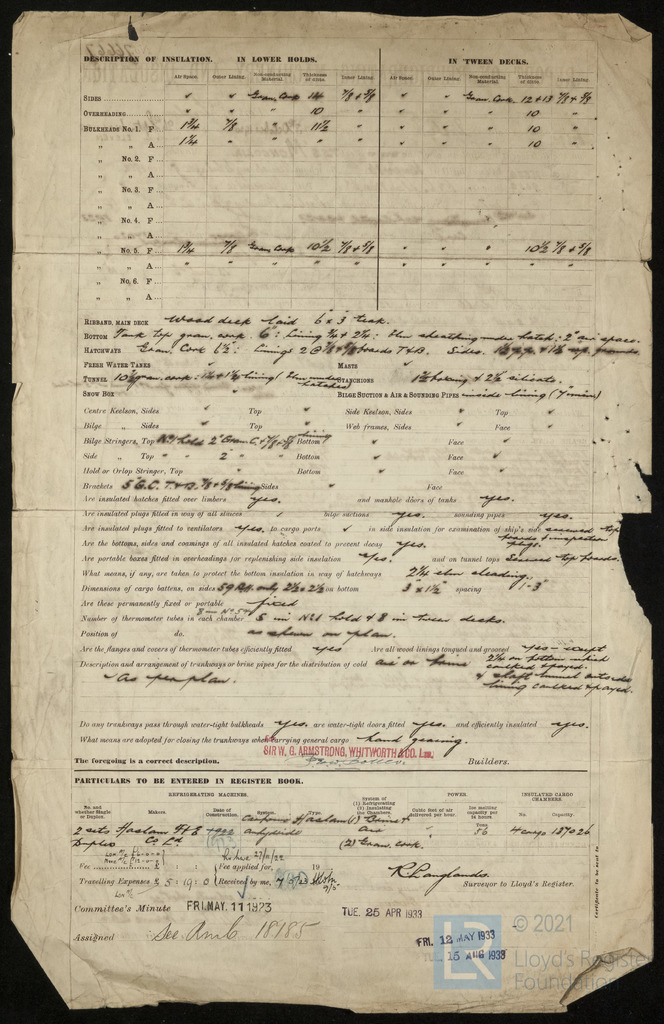 DESCRIPTION OF INSULATION. IN LOWER HOLDS. IN 'TWEEN DECKS.
Air Space. Outer Lining. Non-conducting Material. Thickness of ditto. Inner Lining. Air Space. Outer Lining. Non-conducting Material. Thickness of ditto. Inner Lining.
SIDES " " Gran. Cork 12 7/8 + 5/8 " " Gran. Cork 12 + 13 7/8 + 5/8
OVERHEADING " " " 10 " " " 10 "
BULKHEADS No. 1, F 1 3/4 7/8 " 11 1/2 " " " " 10 "
" " A 1 1/4 " " " " " " " 10 "
" No. 2. F
" " A
" No. 3. F
" " A
" No. 4. F
" " A
" No. 5. F 1 3/4 7/8 Gran. Cork 10 1/2 7/8 + 5/8 " " " 10 1/2 7/8 + 5/8
" " A " " " " " " " " " "
" No. 6. F
" " A
RIBBAND, MAIN DECK Wood deck laid 6 x 3 teak.
BOTTOM Tank top gran. cork 6": lining 3/4 + 2 1/4: Elm sheathing under hatch: 2" air space.
HATCHWAYS Gran. Cork 6 1/2": linings 2 @ boards T & B. Sides.
FRESH WATER TANKS MASTS
TUNNEL 10 1/2 gran. cork: lining: Elm under hatches STANCHIONS 1 1/2 boxing & 2 1/2 silicate.
SNOW BOX BILGE SUCTION & AIR & SOUNDING PIPES inside lining (7 min)
Centre Keelson, Sides " Top " Side Keelson, Sides " Top "
Bilge " Sides " Top " Web frames, Sides " Face "
Bilge Stringers, Top No 1 hold 2" Gran. C. + 7/8 + 5/8 lining Bottom Face "
Side " Top " 2" " " Bottom Face "
Hold or Orlop Stringer, Top Bottom Face "
Brackets 5" G.C. T. & B. 7/8 + 5/8 lining Sides Face
Are insulated hatches fitted over limbers yes. and manhole doors of tanks yes.
Are insulated plugs fitted in way of all sluices bilge suctions yes. sounding pipes yes.
Are insulated plugs fitted to ventilators yes. to cargo ports " in side insulation for examination of ship's side screwed top boards & inspection plugs.
Are the bottoms, sides and coamings of all insulated hatches coated to prevent decay yes.
Are portable boxes fitted in overheadings for replenishing side insulation yes. and on tunnel tops Screwed top boards.
What means, if any, are taken to protect the bottom insulation in way of hatchways 2 1/4 elm sheading.
Dimensions of cargo battens, on sides only 2 1/2 x 2 1/2 on bottom 3 x 1 1/2 spacing 1-3"
Are these permanently fixed or portable fixed
Number of thermometer tubes in each chamber 5 in No 1 hold & 8 in tween decks.
Position of do. as shewn on plan.
Are the flanges and covers of thermometer tubes efficiently fitted yes Are all wood linings tongued and grooved yes - except
Description and arrangement of trunkways or brine pipes for the distribution of cold air or brine 2 1/4 on bottom which caulked & payed.
As per plan. & shaft tunnel outside lining caulked & payed.
Do any trunkways pass through water-tight bulkheads yes. are water-tight doors fitted yes. and efficiently insulated yes.
What means are adopted for closing the trunkways when carrying general cargo hand gearing.
SIR W. G. ARMSTRONG, WHITWORTH & CO. LTD.
The foregoing is a correct description. Builders.
PARTICULARS TO BE ENTERED IN REGISTER BOOK.
REFRIGERATING MACHINES. POWER INSULATED CARGO CHAMBERS.
No. and whether Single or Duplex. Makers. Date of Construction. System. Type. System of (1) Refrigerating (2) Insulating the Chambers. Cubic feet of air delivered per hour. Ice melting capacity per 24 hours. No. Capacity.
2 sets Haslam F & E 1922 Carbonic Haslam (1) Brine & " Tons 56 4 cargo 187026
Duplex Co Ld anhydride air
(2) Gran. cork.
Fee Fee applied for, 19
Travelling Expenses £ 5 : 19 : 0 Received by me, R Langlands
Surveyor to Lloyd's Register.
Committee's Minute FRI. MAY. 11 1923 TUE. 25 APR 1933
Assigned See Amb 18185 FRI. 12 MAY 1933
TUE. 15 AUG 1933
Certificate to be sent to
LR © 2021
Lloyd's Register
Foundation